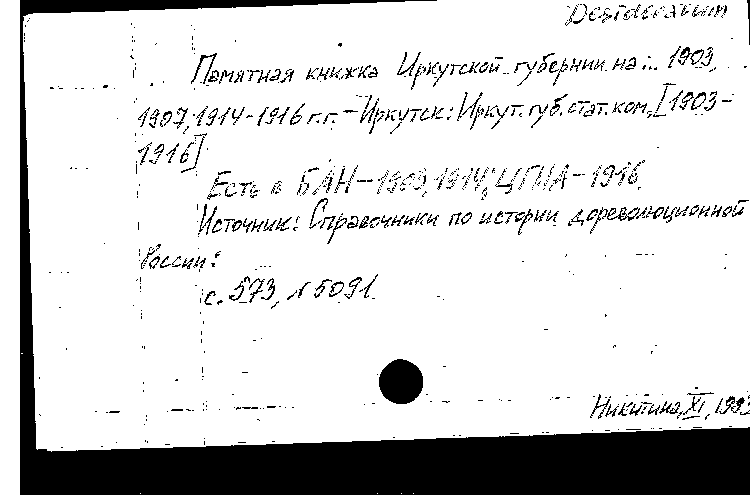 Desideratum
Памятная книжка Иркутской губернии на... 1903,
1907, 1914-1916 г.г. - Иркутск: Иркут. губ. стат. ком., [1903-
1916]
Есть в БАН - 1903, 1914; ЦГИА - 1916.
Источник: Справочники по истории дореволюционной
России:
с. 573, № 5091
Никитина, XI,